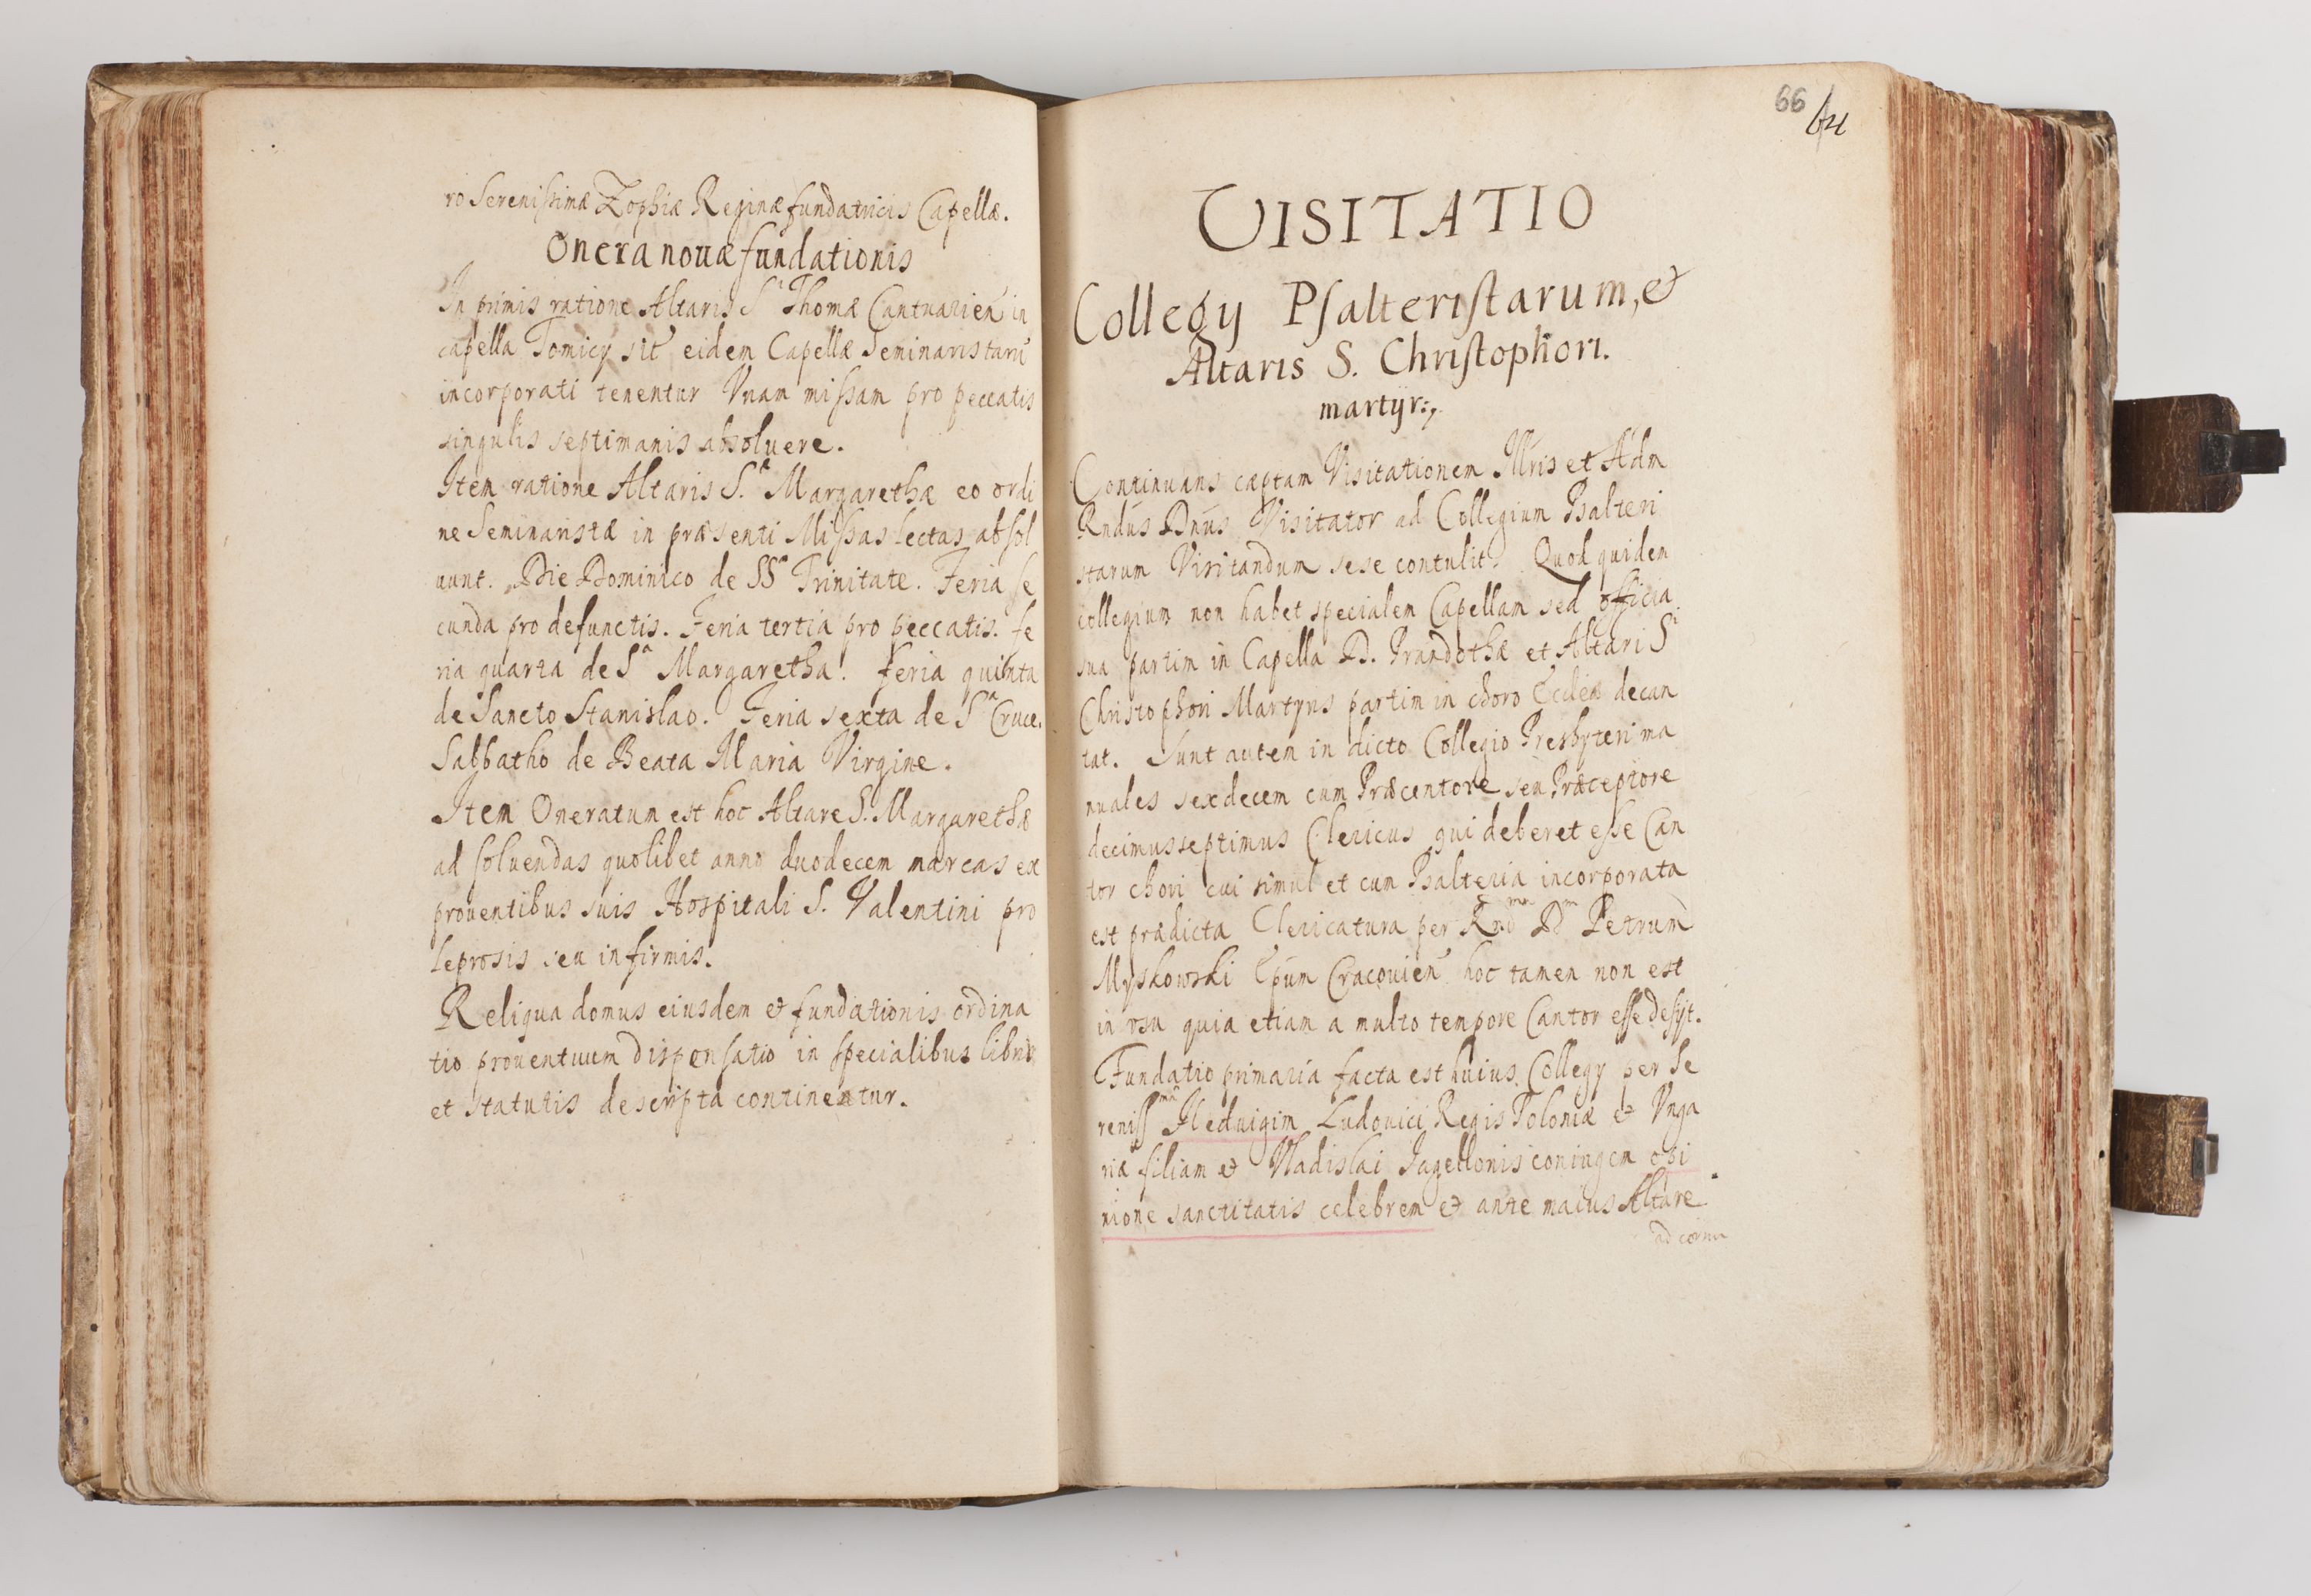 ro Serenissimæ Zophiæ Reginæ fundatricis Capellæ.
Onera nouæ fundationis
In primis ratione Altaris Sⁱ Thomæ Cantuarien in
capella Tomicy sit eidem Capellæ Seminaristarũ
incorporati tenentur Vnam missam pro peccatis
singulis septimanis absoluere.
Item ratione Altaris S.ᵃ Margarethæ eo ordi
ne Seminaristæ in præsenti Missas lectas absol
uunt. Die Dominico de SSᵃ Trinitate. Feria se
cunda pro defunctis. Feria tertia pro peccatis. fe
ria quarta de Sᵃ Margaretha. Feria quinta
de Sancto Stanislao. Feria sexta de Sᵃ Cruce.
Sabbatho de Beata Maria Virgine.
Item Oneratum est hoc Altare S. Margarethæ
ad soluendas quolibet anno duodecem marcas ex
prouentibus suis Hospitali S. Valentini pro
leprosis seu infirmis.
Reliqua domus eiusdem et fundationis ordina
tio prouentuum dispensatio in specialibus libris
et statutis descripta continentur.
66
VISITATIO
Collegy Psalteristarum, et
Altaris S. Christophori.
martyr:,
Continuans cæptam Visitationem Illris et Adm
Rndus Dnus Visitator ad Collegium Psalteri
starum Visitandum sese contulit. Quod quidem
collegium non habet specialem Capellam sed officia
sua partim in Capella D. Prandothæ et Altari Sⁱ
Christophori Martyris partim in choro Ecclæ decan
tat. Sunt autem in dicto Collegio Presbyteri ma
nuales sexdecem cum Præcentore seu Præceptore
decimusseptimus Clericus qui deberet esse Can
tor chori cui simul et cum Psalteria incorporata
est prædicta Clericatura per Rndᵐᵘ Dᵐ Petrum
Myskowski Epum Cracouien hoc tamen non est
in vsu quia etiam a multo tempore Cantor esse desyt.
Fundatio primaria facta est huius Collegy per Se
renissᵐᵃ Heduigim Ludouici Regis Poloniæ et Vnga
riæ filiam et Vladislai Jagellonis coniugem opi
nione sanctitatis celebrem et ante maius Altare
ad cornu